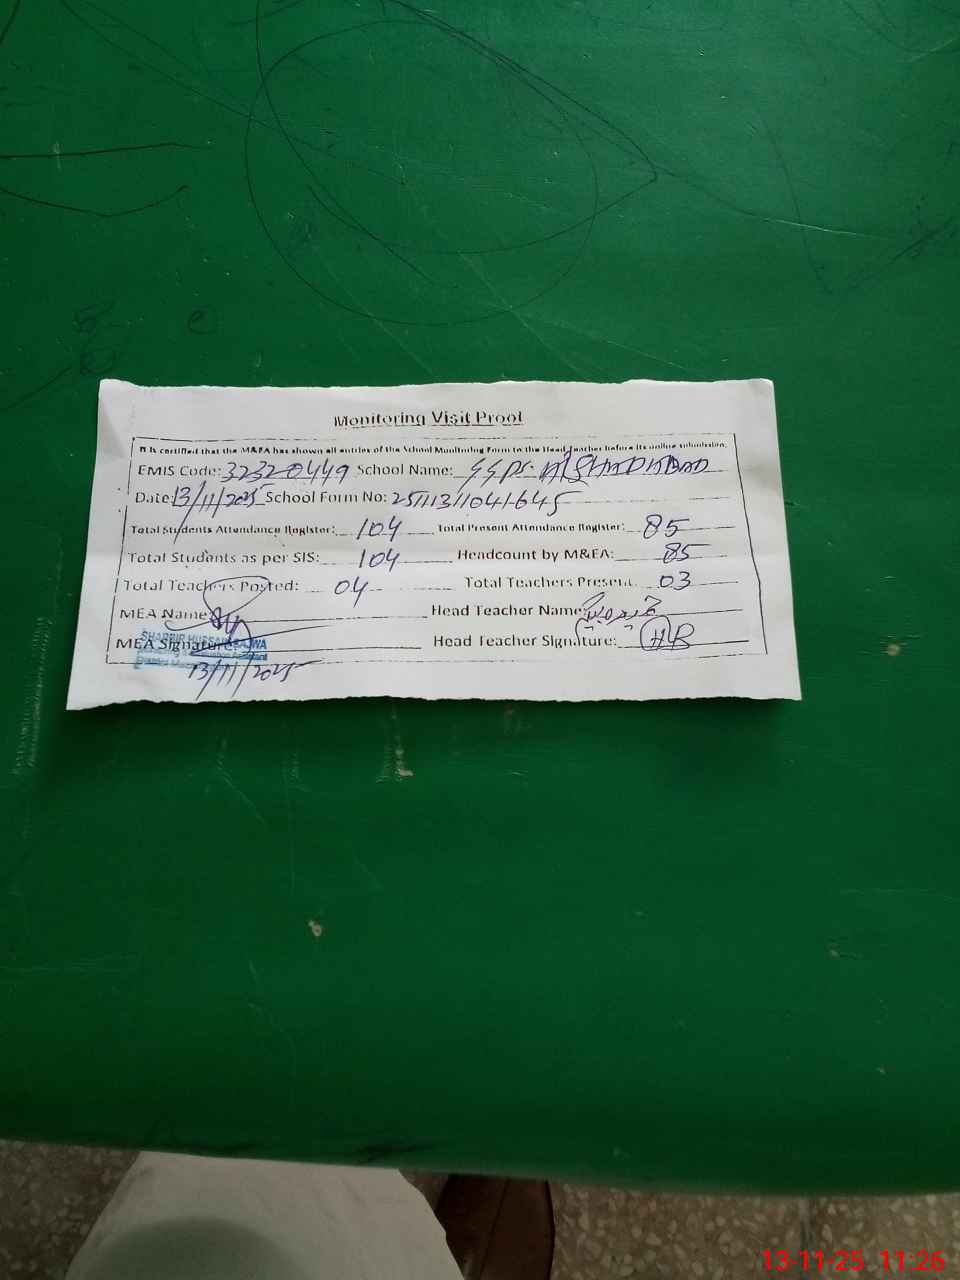 5 e
Monitoring Visit Proof
It is certified that the M&EA has shown all entries of the School Monitoring Form to the Head Teacher before its online submission.
EMIS Code: 32320449 School Name: GGPS
Date: 13/11/2025 School Form No: 25111311041645
Total Students Attendance Register: 104 Total Present Attendance Register: 85
Total Students as per SIS: 104 Headcount by M&EA: 85
Total Teachers Posted: 04 Total Teachers Present: 03
MEA Name Head Teacher Name:
MEA Signature: Head Teacher Signature: HB
SHABBIR HUSSAIN
13/11/2025
13-11-25 11:26